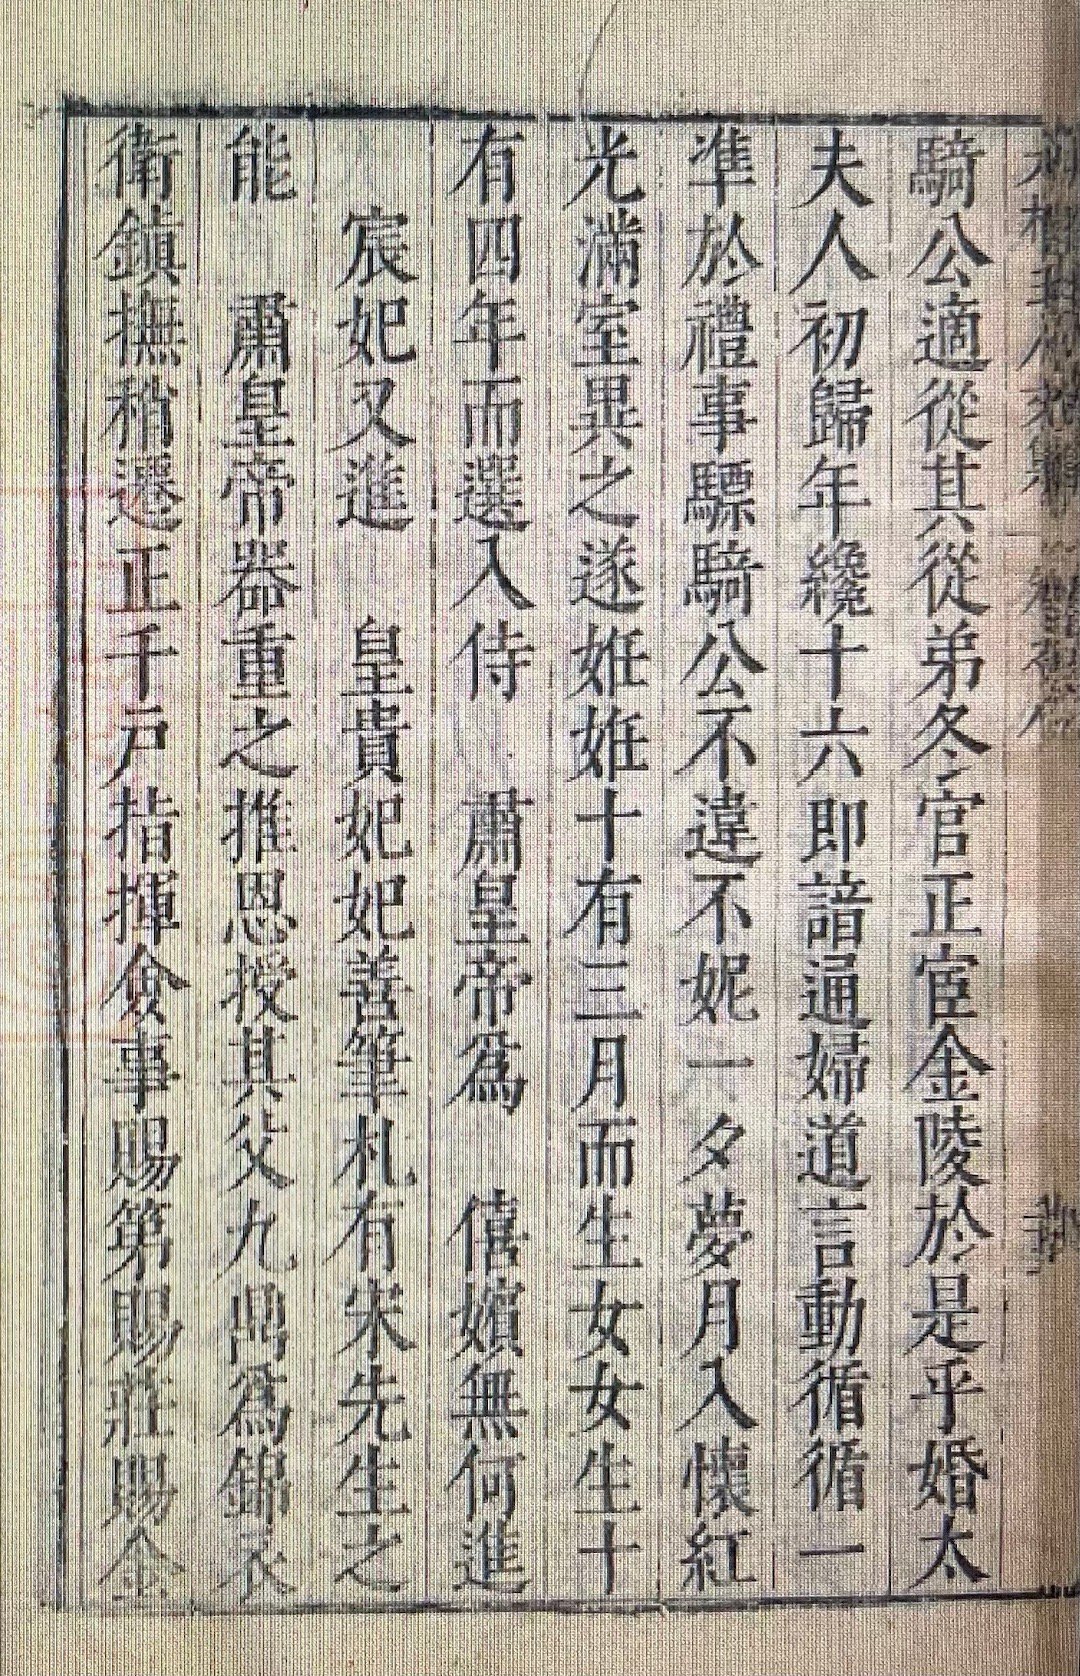 騎公適從其從弟冬官正宦金陵於是乎婚太
夫人初歸年纔十六即諳通婦道言動循循一
準於禮事驃騎公不違不妮一夕夢月入懷紅
光滿室異之遂姙姙十有三月而生女女生十
有四年而選入侍　肅皇帝爲　僖嬪無何進
　宸妃又進　皇貴妃妃善筆札有宋先生之
能　肅皇帝器重之推恩授其父九鼎爲錦衣
衛鎮撫稍遷正千戶指揮僉事賜第賜莊賜金